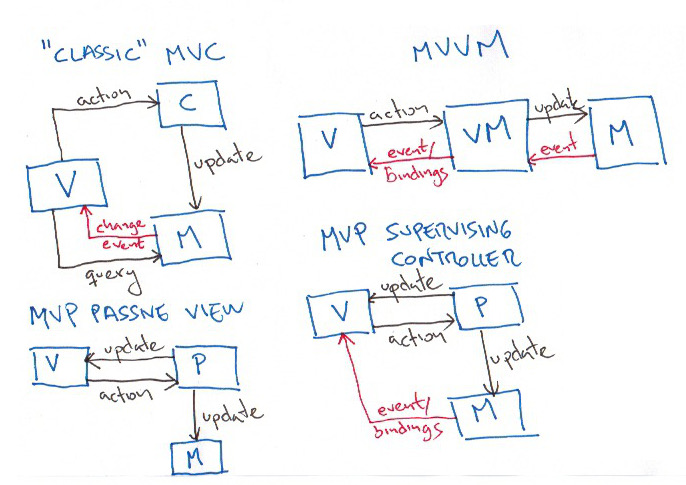 "CLASSIC" MVC
action
C
update
V
change
event
M
query
MVVM
action
update
V
VM
M
event/
bindings
event
MVP PASSIVE VIEW
update
V
P
action
update
M
MVP SUPERVISING
CONTROLLER
update
V
P
action
update
event/
bindings
M